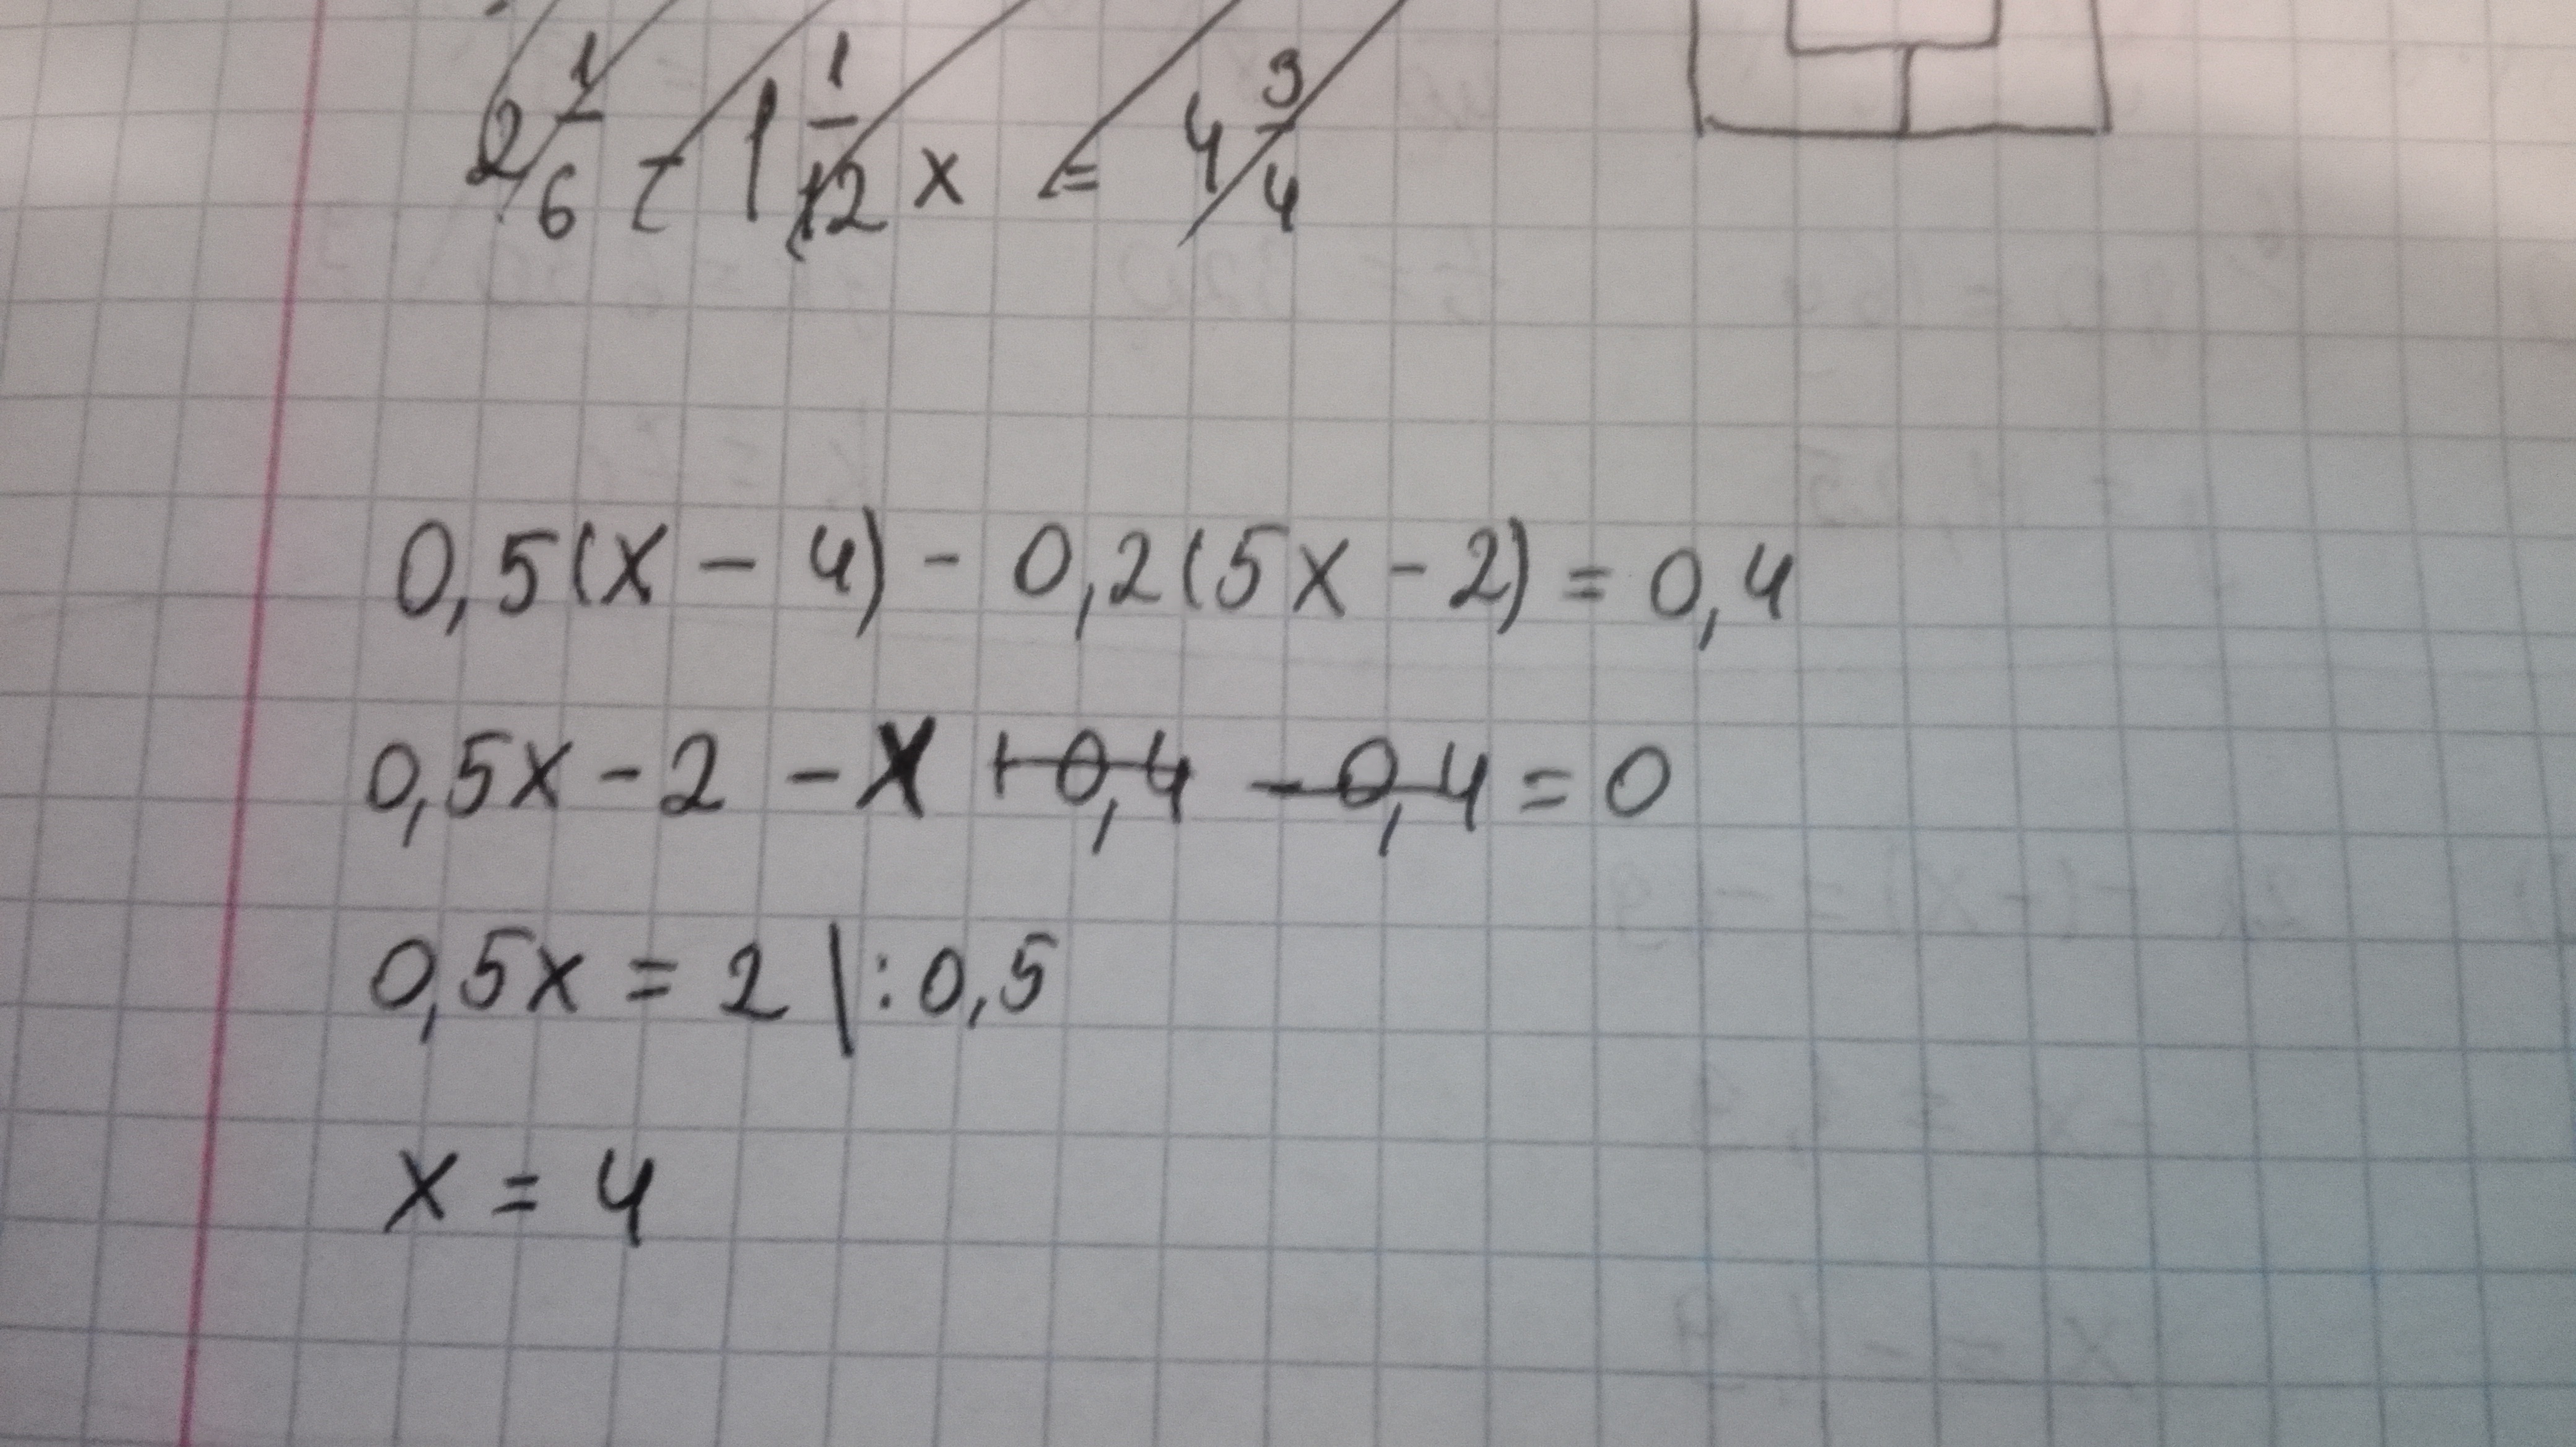 2 1/6 - 1 1/12 x = 4 3/4
0,5(x - 4) - 0,2(5x - 2) = 0,4
0,5x - 2 - x + 0,4 - 0,4 = 0
0,5x = 2 |:0,5
x = 4